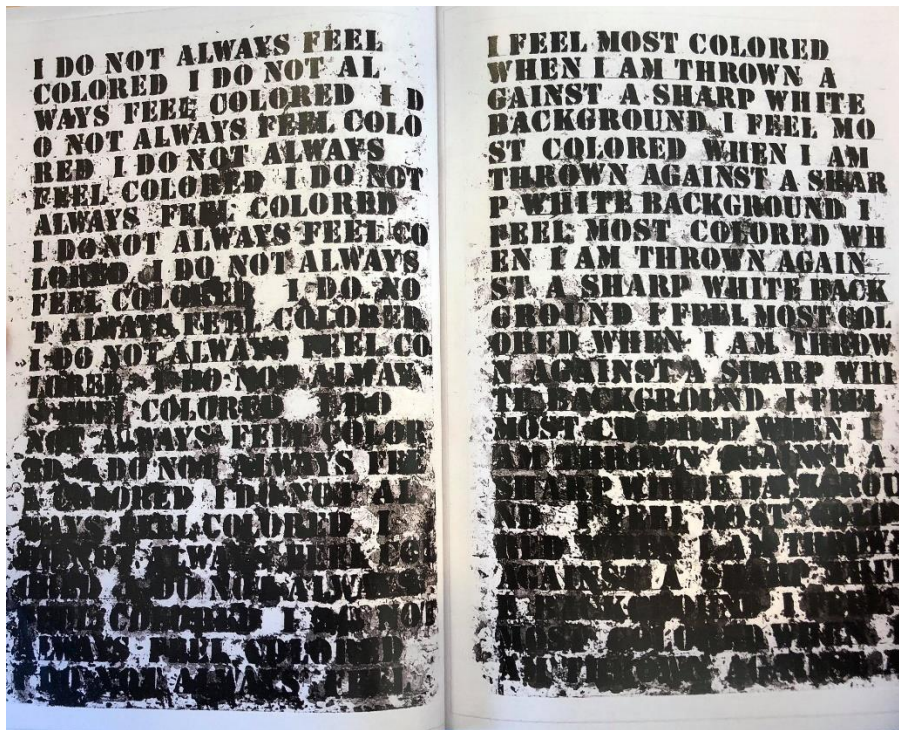 I DO NOT ALWAYS FEEL
COLORED I DO NOT AL
WAYS FEEL COLORED I D
O NOT ALWAYS FEEL COLO
RED I DO NOT ALWAYS
FEEL COLORED I DO NOT
ALWAYS FEEL COLORED
I DO NOT ALWAYS FEEL CO
LORED I DO NOT ALWAYS
FEEL COLORED I DO NO
T ALWAYS FEEL COLORED
I DO NOT ALWAYS FEEL CO
I DO NOT ALWAY
COLORED I DO
NOT ALWAYS FEEL COLOR
DO NOT ALWAYS FEE
COLORED I DO NOT AL
WAYS FEEL COLORED I
NOT ALWAYS FEEL
I DO NOT ALWAYS
COLORED I DO NOT
ALWAYS FEEL COLORED
I DO NOT ALWAYS FEEL
I FEEL MOST COLORED
WHEN I AM THROWN A
GAINST A SHARP WHITE
BACKGROUND I FEEL MO
ST COLORED WHEN I AM
THROWN AGAINST A SHAR
P WHITE BACKGROUND I
FEEL MOST COLORED WH
EN I AM THROWN AGAIN
ST A SHARP WHITE BACK
GROUND I FEEL MOST COL
ORED WHEN I AM THROW
N AGAINST A SHARP WHI
TE BACKGROUND I FEEL
MOST COLORED WHEN I
AM THROWN AGAINST A
SHARP WHITE BACKGROU
ND I FEEL MOST COLO
RED WHEN I AM THROWN
AGAINST A SHARP WHIT
E BACKGROUND I FEEL
MOST COLORED WHEN I
AM THROWN AGAINST A